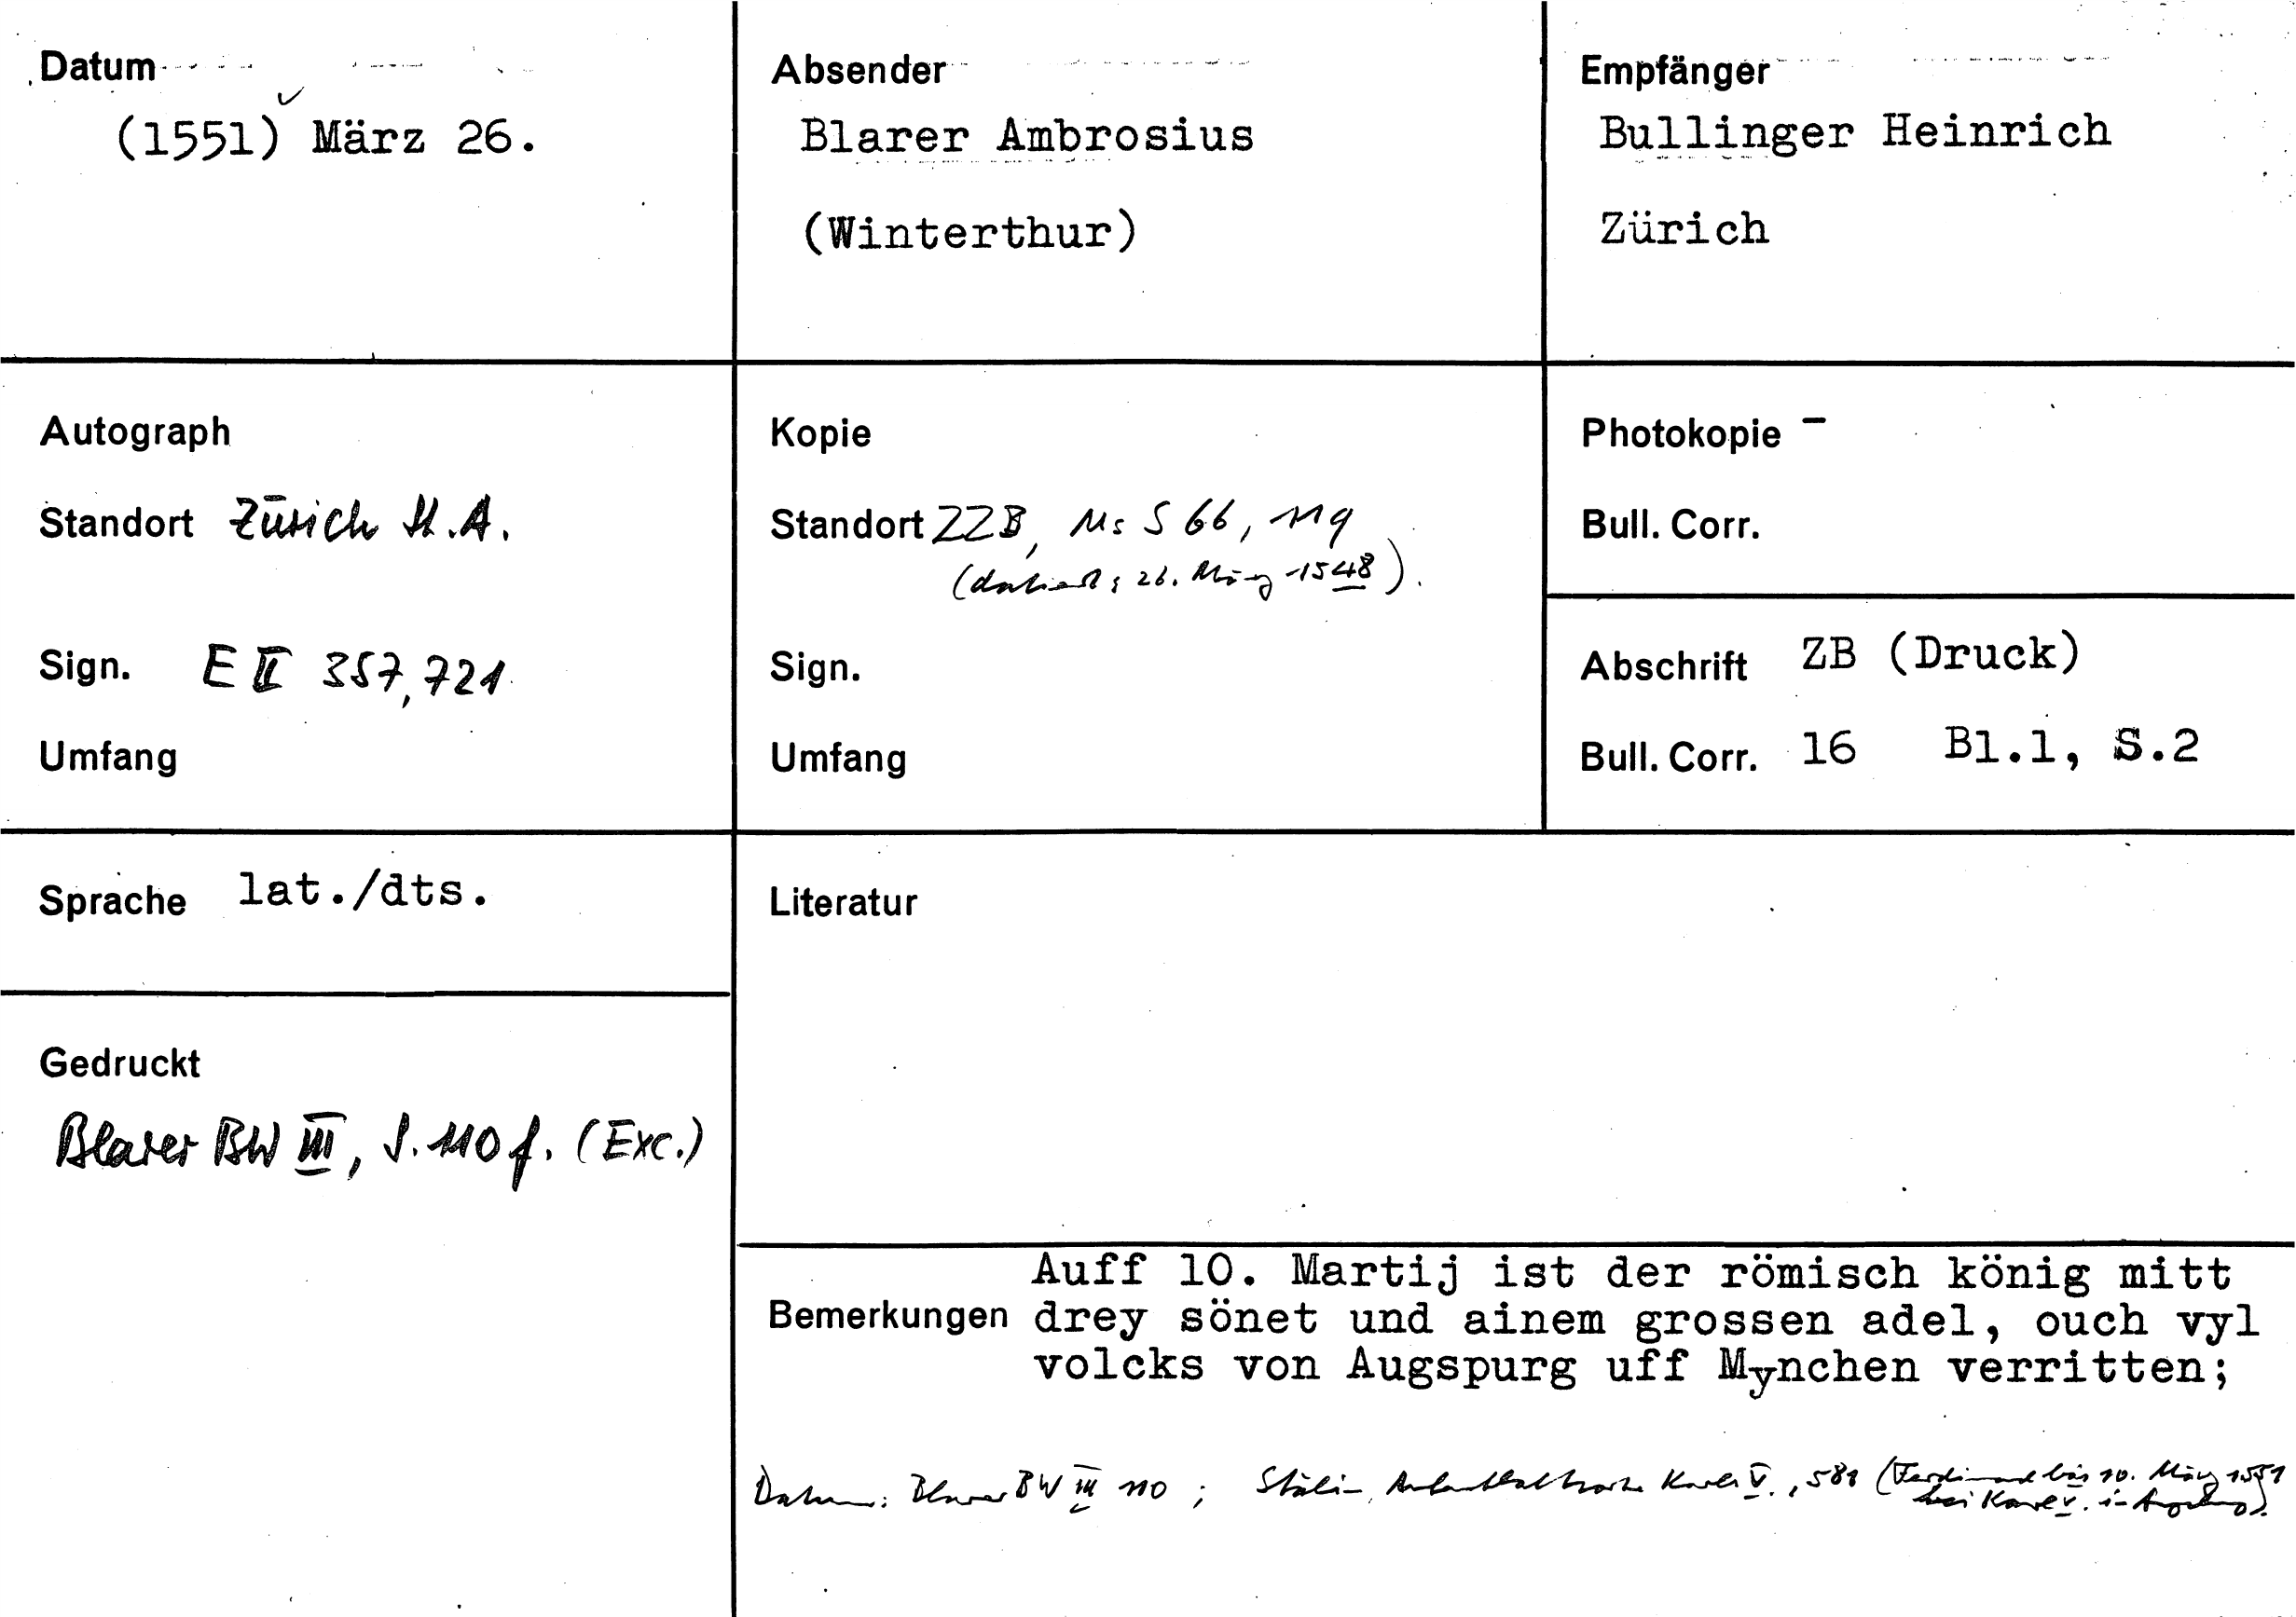 Datum
(1551) März 26.
Absender
Blarer Ambrosius
(Winterthur)
Empfänger
Bullinger Heinrich
Zürich
Autograph
Standort Zürich St.A.
Sign. E II 357, 721
Umfang
Kopie
Standort ZZB, Ms S 66, 119
(datiert: 26. März 1548).
Sign.
Umfang
Photokopie -
Bull. Corr.
Abschrift ZB (Druck)
Bull. Corr. 16 Bl.1, S.2
Sprache lat./dts.
Gedruckt
Blarer BW III, S. 110 f. (Exc.)
Literatur
Bemerkungen
Auff 10. Martij ist der römisch könig mitt
drey sönet und ainem grossen adel, ouch vyl
volcks von Augspurg uff Mynchen verritten;
Datum: Blarer BW III 110 ; Stälin, Aufenthaltsorte Karls V., 581 (Ferdinand bis 10. März 1551
bei Karl V. in Augsburg).